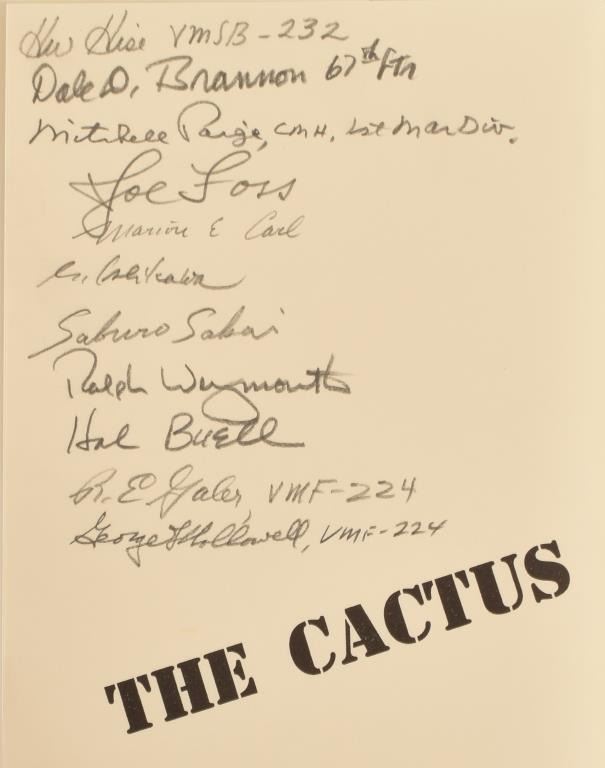 Hise VMSB-232
Dale D. Brannon 67th Ftr
Mitchell Paige, CMH, 1st Mar Div.
Joe Foss
Marion E Carl
Saburo Sakai
Ralph Weymouth
Hal Buell
R. E. Galer, VMF-224
George L Hollowell, VMF-224
THE CACTUS